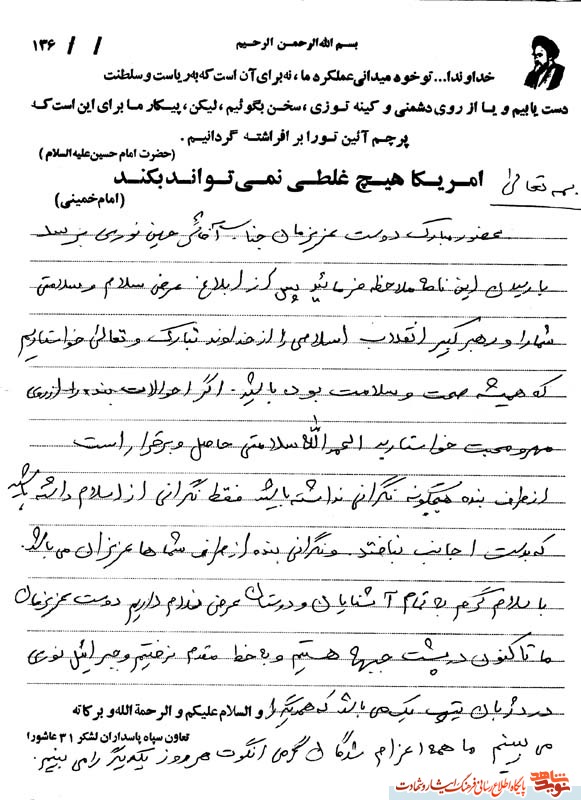 بسم الله الرحمن الرحیم
۱۳۶ / /
خداوندا... تو خود میدانی عملکرد ما، نه برای آن است که به ریاست و سلطنت
دست یابیم و یا از روی دشمنی و کینه توزی، سخن بگوئیم، لیکن، پیکار ما برای این است که
پرچم آئین تو را بر افراشته گردانیم.
(حضرت امام حسین علیه السلام)
امریکا هیچ غلطی نمی تواند بکند
(امام خمینی)
بسمه تعالی
حضور مبارک دوست عزیزمان جناب آقای نوری برسد
با رسیدن این نامه ملاحظه فرمائید پس از ابلاغ عرض سلام و سلامتی
شما را و رهبر کبیر انقلاب اسلامی را از خداوند تبارک و تعالی خواستاریم
که همیشه صحت و سلامت بوده باشید. اگر احوالات بنده را از روی
مهر و محبت خواستارید الحمدالله سلامتی حاصل و برقرار است
از طرف بنده هیچگونه نگرانی نداشته باشید فقط نگرانی از اسلام داشته باشید
که بدست اجانب نیافتد. و نگرانی بنده از طرف شماها عزیزان می باشد.
با سلام گرم به تمام آشنایان و دوستان عرض سلام داریم دوست عزیزمان
ما تا کنون در پشت جبهه هستیم و به خط مقدم نرفتیم و جبرائیل نوری
در گردان تیپ یک می باشد که همدیگر را
و السلام علیکم و الرحمة الله و برکاته
تعاون سپاه پاسداران لشکر ۳۱ عاشورا
می بینیم ما همه اعزام شدگان گرمی انگوت هر روز یکدیگر را می بینیم.
نوید شاهد
پایگاه اطلاع رسانی فرهنگ ایثار و شهادت